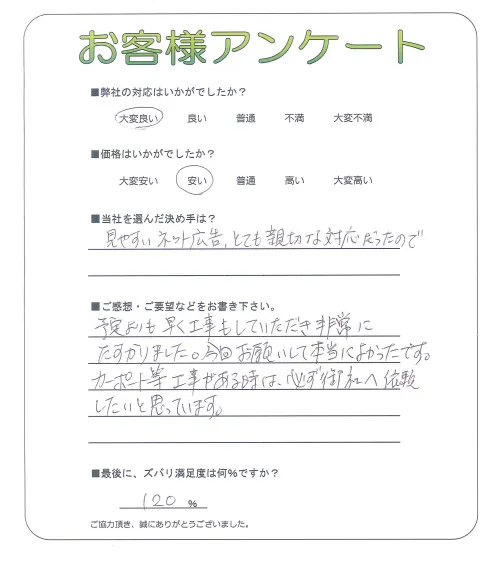 お客様アンケート
■弊社の対応はいかがでしたか?
大変良い 良い 普通 不満 大変不満
■価格はいかがでしたか?
大変安い 安い 普通 高い 大変高い
■当社を選んだ決め手は?
見やすいネット広告,とても親切な対応だったので
■ご感想・ご要望などをお書き下さい。
予定よりも早く工事もしていただき非常に
たすかりました。今回お願いして本当によかったです。
カーポート等工事がある時は、必ず御社へ依頼
したいと思っています。
■最後に、ズバリ満足度は何%ですか?
120 %
ご協力頂き、誠にありがとうございました。